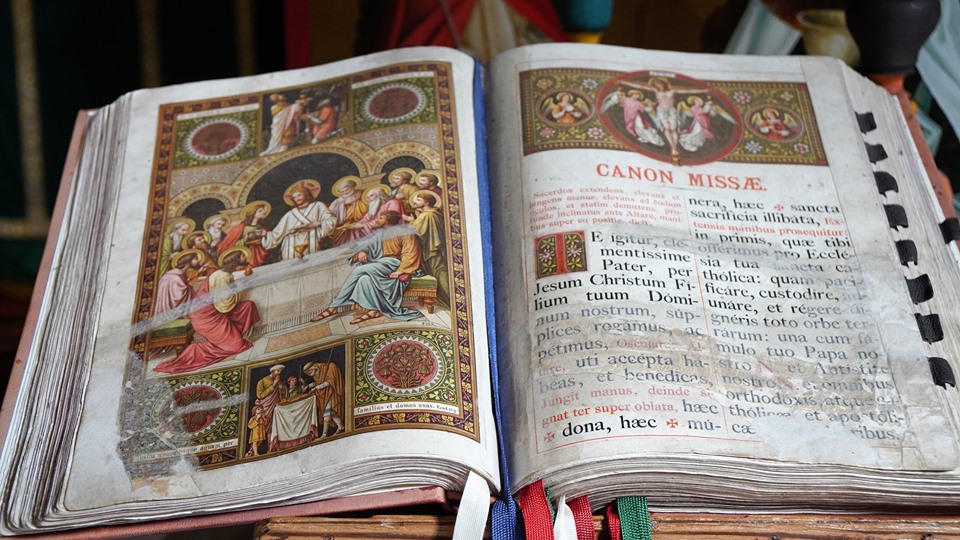 familias et domos suas.
CANON MISSÆ.
Sacerdos extendens, elevans et
jungens manus, elevans ad cœlum
oculos, et statim demittens, pro-
funde inclinatus ante Altare, mani-
bus super eo positis, dicit:
TE igitur, cle-
mentissime
Pater, per
Jesum Christum Fí-
lium tuum Dómi-
num nostrum, súp-
plices rogamus, ac
pétimus, Osculatur Al-
tare, uti accépta há-
beas, et benedícas,
Jungit manus, deinde
gnat ter super oblata, hæc
✠ dona, hæc ✠ mú-
nera, hæc ✠ sancta
sacrifícia illibáta, Ex-
tensis manibus prosequitur:
in primis, quæ tibi
offérimus pro Ecclé-
sia tua sancta ca-
thólica: quam paci-
ficáre, custodíre,
unáre, et régere di-
gnéris toto orbe ter-
rárum: una cum fá-
mulo tuo Papa no-
stro N. et Antístite
nostro N. et ómnibus
orthodoxis, atque
thólicæ et apostóli-
cæ